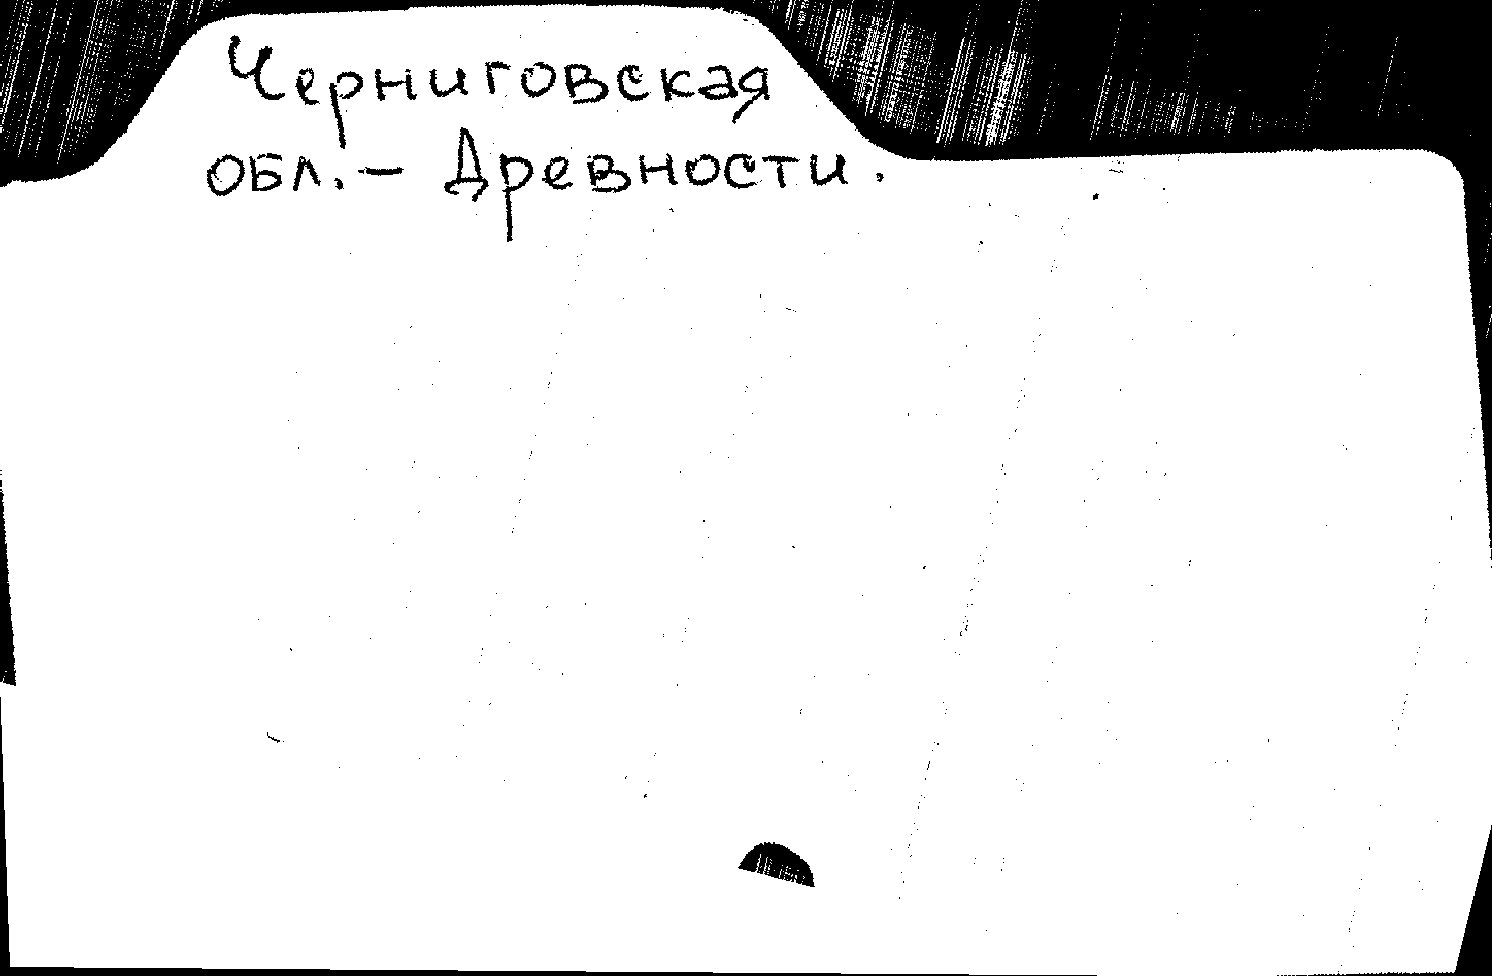 Черниговская
обл. – Древности.